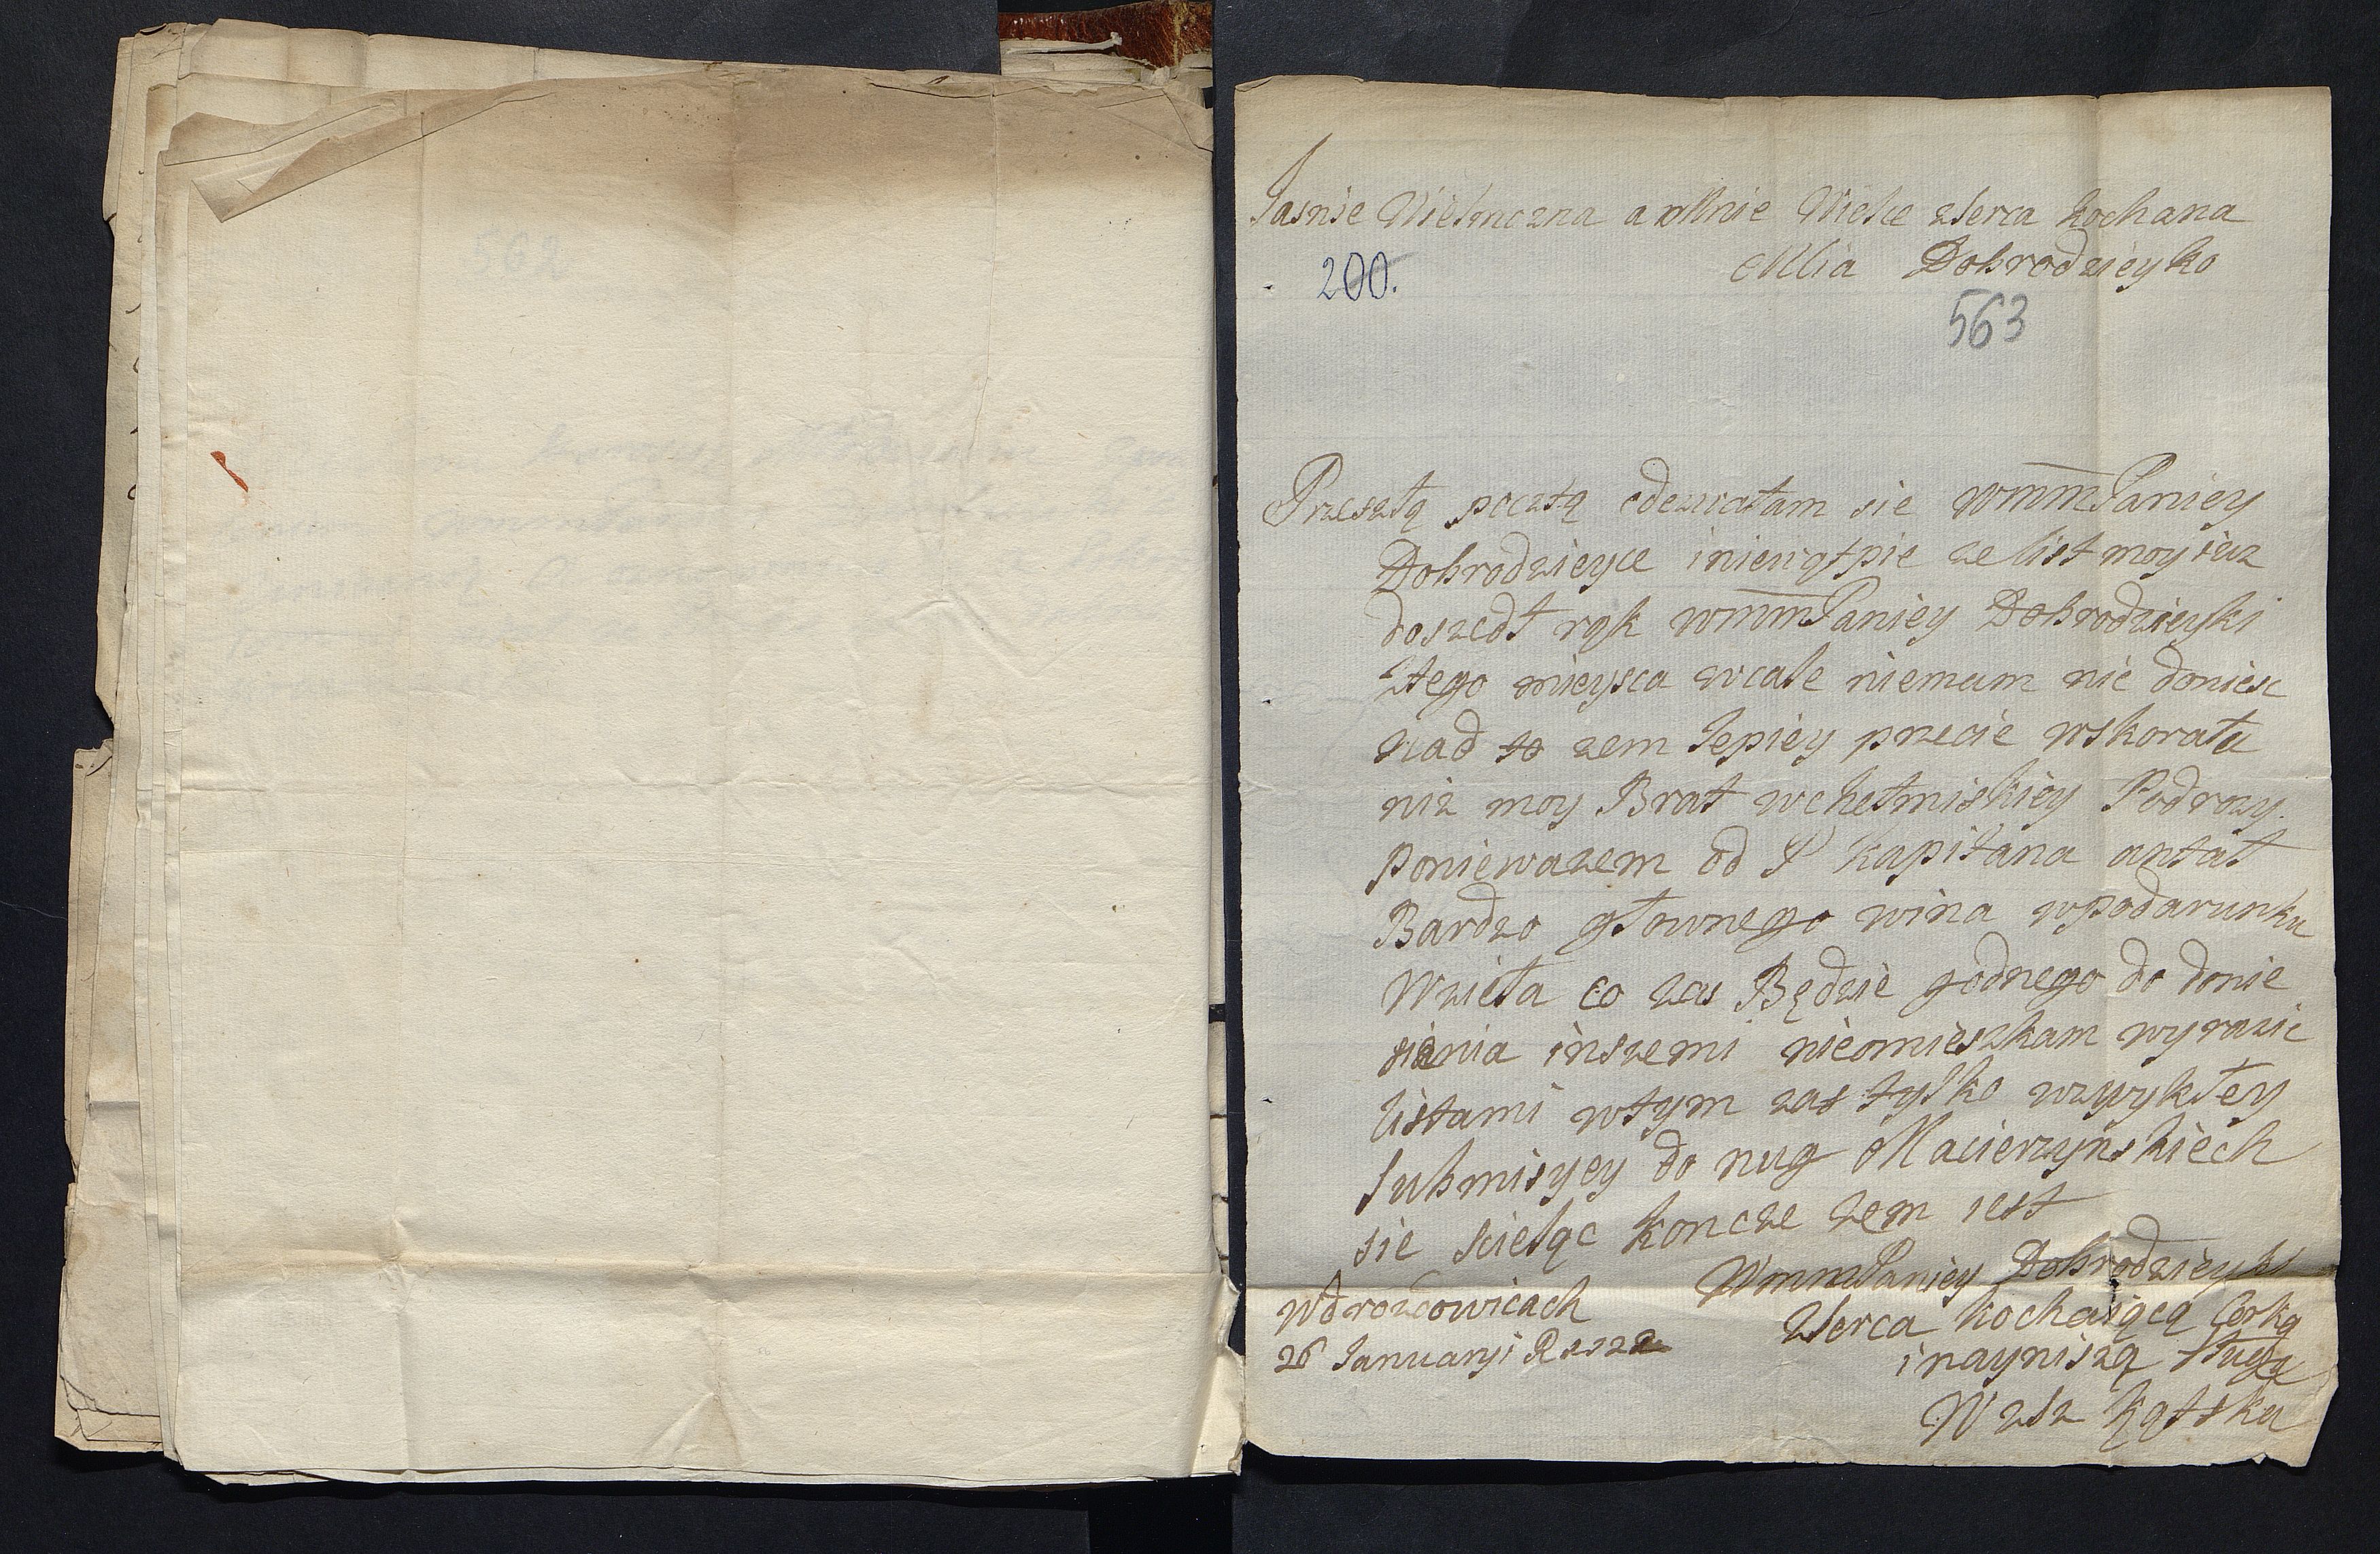 Jasnie Wielmozna a mnie Wielce zserca kochana
Mia Dobrodzieyko
200.
563
Przeszłą pocztą odezwałam sie WMMPaniey
Dobrodzieyce iniewątpie ze list moy iuz
doszedł rąk WMMPaniey Dobrodzieyki
ztego mieysca wcale niemam nic doniesc
nad to zem lepiey przecie wskorała
niz moy Brat wchełmiskiey Podrozy.
poniewazem od P kapitana antał
Bardzo głownego wina wpodarunku
Wzieła co zas Będzie godnego do donie
sienia inszemi nieomieszkam wyrazic
listami wtym zas tylko wzwykłey
submisyey do nug Macierzynskiech
sie scieląc koncze zem iest
WMMPaniey Dobrodzieyki
Wdrozdowicach
zserca kochaiącą Corką
26 Januaryi
inayniszą sługą
kątska